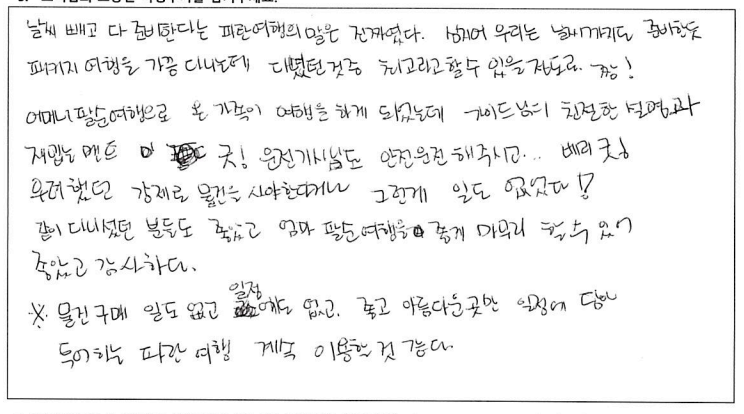 날씨 빼고 다 준비한다는 파란여행의 말은 진짜였다. 심지어 우리는 날씨까지도 준비한듯
패키지 여행을 가끔 다니는데 다녔던것중 최고라고 할 수 있을 정도로. 짱!
어머니 팔순여행으로 온 가족이 여행을 하게 되었는데 가이드님의 친절한 설명과
재밌는 멘트 굿! 운전기사님도 안전운전 해주시고... 베리 굿!
우려했던 강제로 물건을 사야한다거나 그런게 일도 없었다!?
같이 다니셨던 분들도 좋았고 엄마 팔순여행을 좋게 마무리 할 수 있어
좋았고 감사하다.
※ 물건구매 일도 없고 일정에도 없고. 좋고 아름다운곳만 일정에
파란 여행 계속 이용할 것 같다.